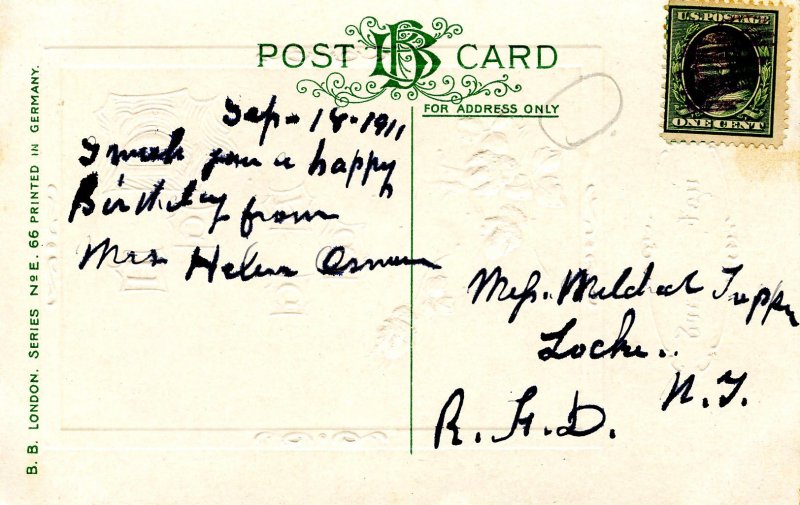 POST BB CARD
FOR ADDRESS ONLY
U.S. POSTAGE
ONE CENT
Sep - 18 - 1911
I wish you a happy
Birthday from
Mrs Helen Osmun
Miss. Mildred
Locke..
N.Y.
R.F.D.
B. B. LONDON. SERIES Nº E. 66 PRINTED IN GERMANY.